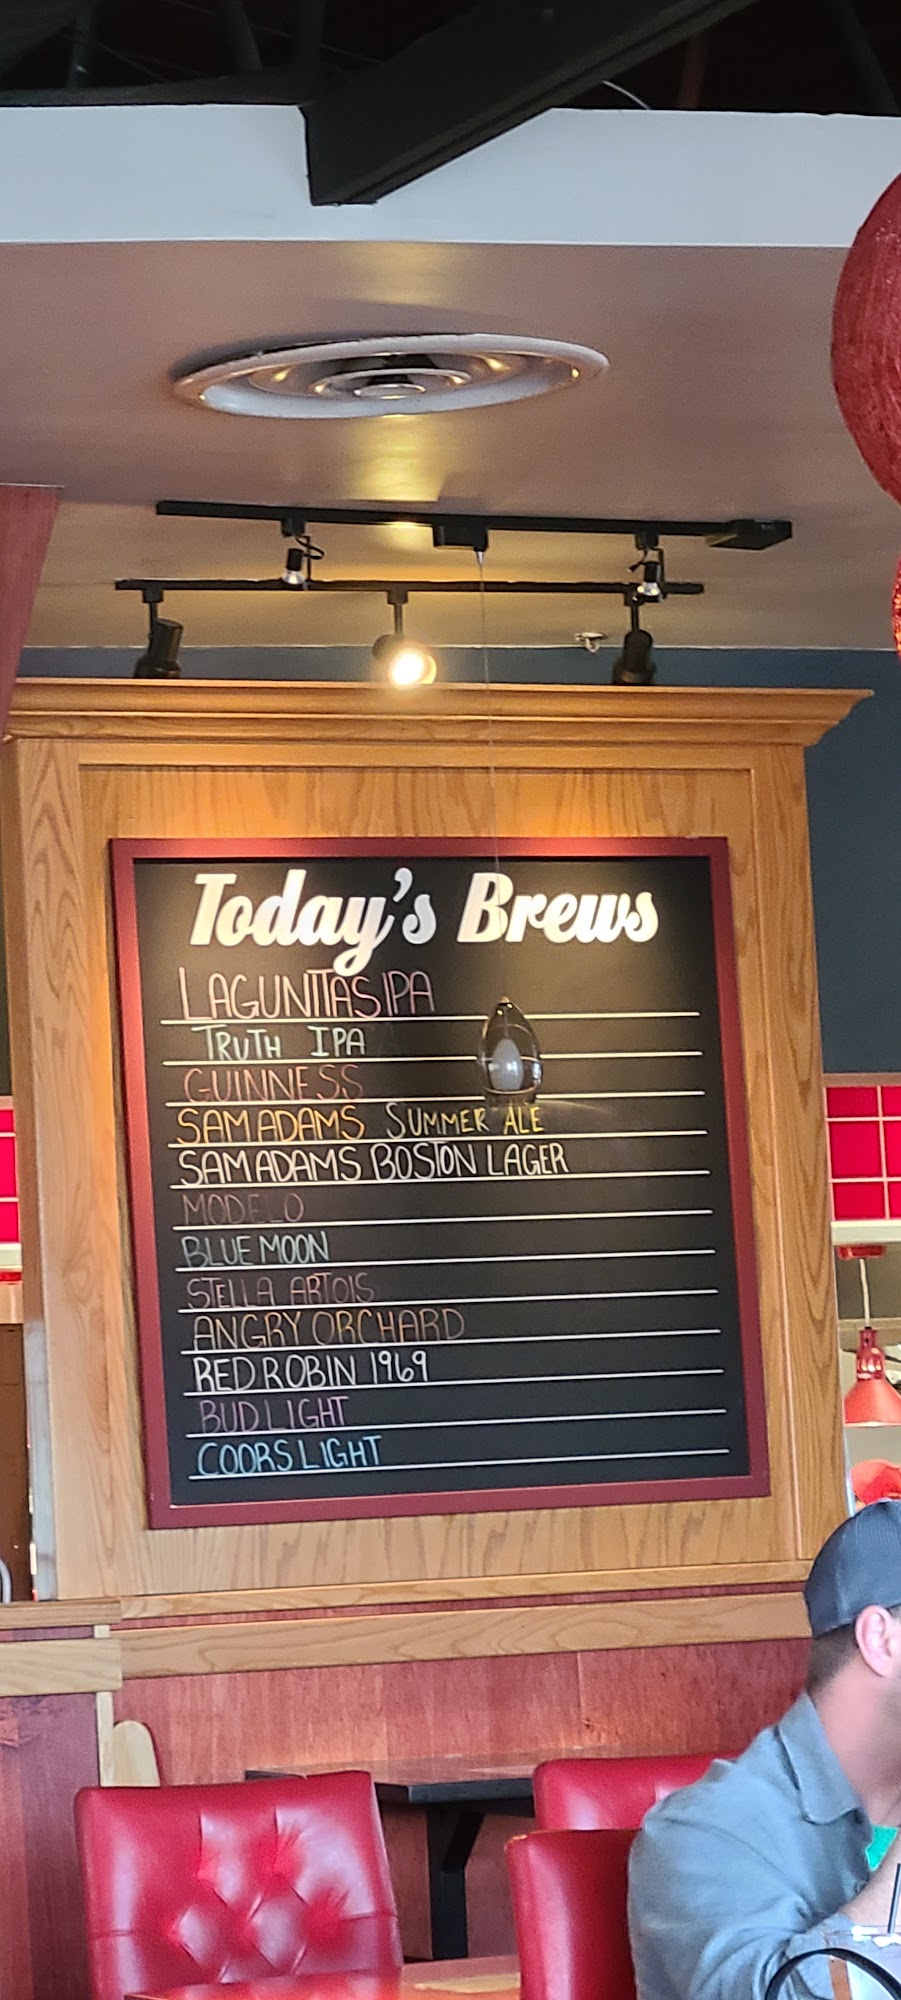 Today's Brews
LAGUNITAS IPA
TRUTH IPA
GUINNESS
SAM ADAMS SUMMER ALE
SAM ADAMS BOSTON LAGER
MODELO
BLUE MOON
STELLA ARTOIS
ANGRY ORCHARD
RED ROBIN 1969
BUD LIGHT
COORS LIGHT